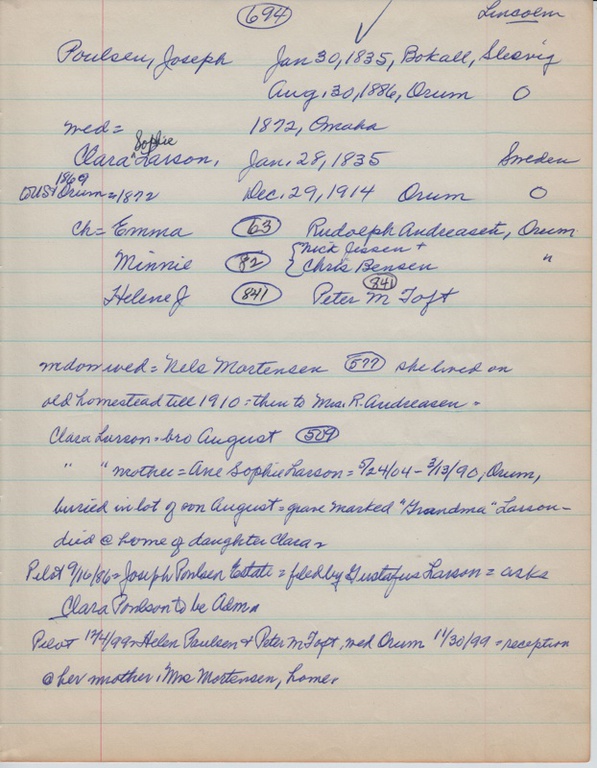 694 Lincoln
Poulsen, Joseph Jan 30, 1835, Bokall, Slesvig
Aug. 30, 1886, Orum O
wed= 1872, Omaha
Sophie
Clara "Larson, Jan. 28, 1835 Sweden
1869
to US+ Orum=1872 Dec. 29, 1914 Orum O
ch= Emma 63 Rudolph Andreasen, Orum
Minnie 82 {Nick Jessen +
Chris Bensen "
Helene J 841 Peter M Toft 341
wed= Nels Mortensen 577 she lived on
old homestead till 1910 = then to Mrs. R. Andreasen =
Clara Larson = bro August 509
" " mother = Ane Sophie Larson = 5/24/04 - 3/13/90, Orum,
buried in lot of son August = grave marked "Grandma" Larson -
died @ home of daughter Clara =
Pilot 9/16/86 = Joseph Poulsen Estate = filed by Gustafus Larson = asks
Clara Poulson to be Adm
Pilot 12/4/99 = Helen Paulsen + Peter M Toft, wed Orum 11/30/99 = reception
@ her mother, Mrs Mortensen, home.